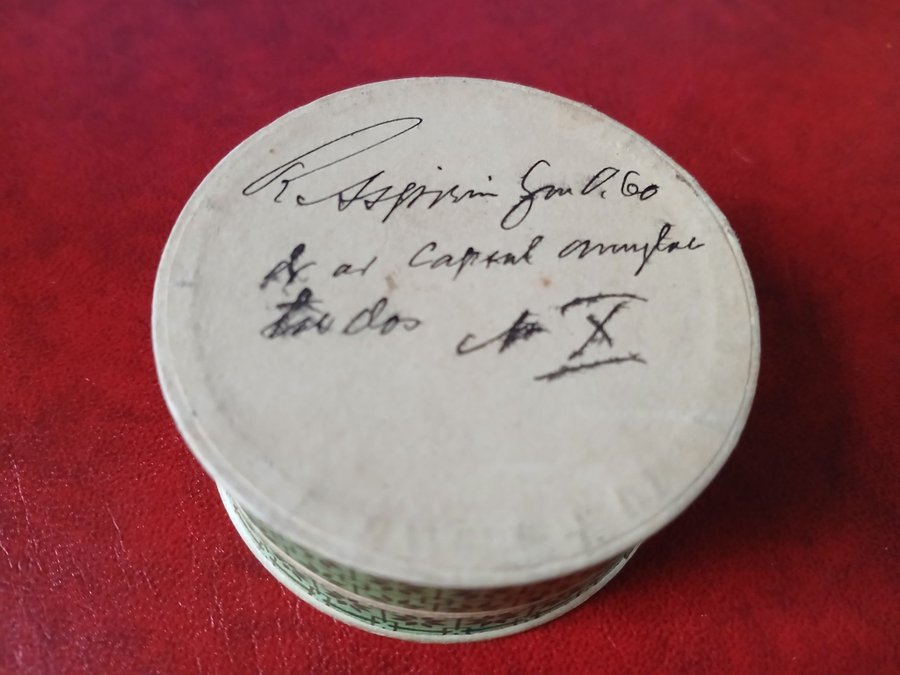 R. Aspirin Gm 0.60
d. ad capsul amylac
tal dos No X